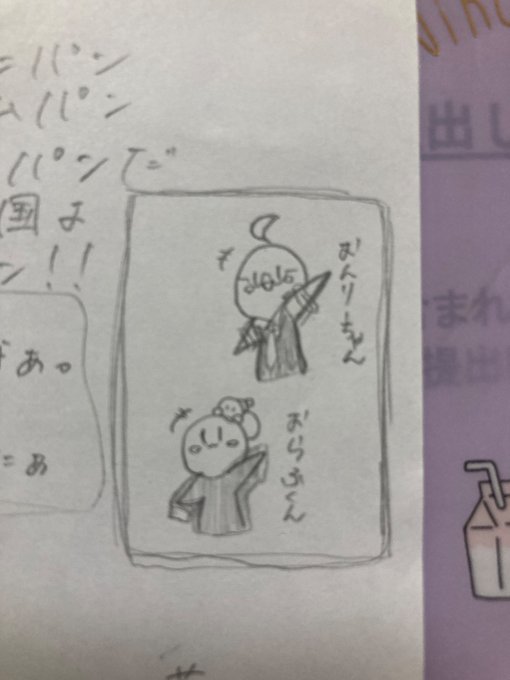 ニパン
ムパン
パンで
国は
ン!!
があ。
あ
おんりーちゃん
おらふくん
出し
まれ
提出